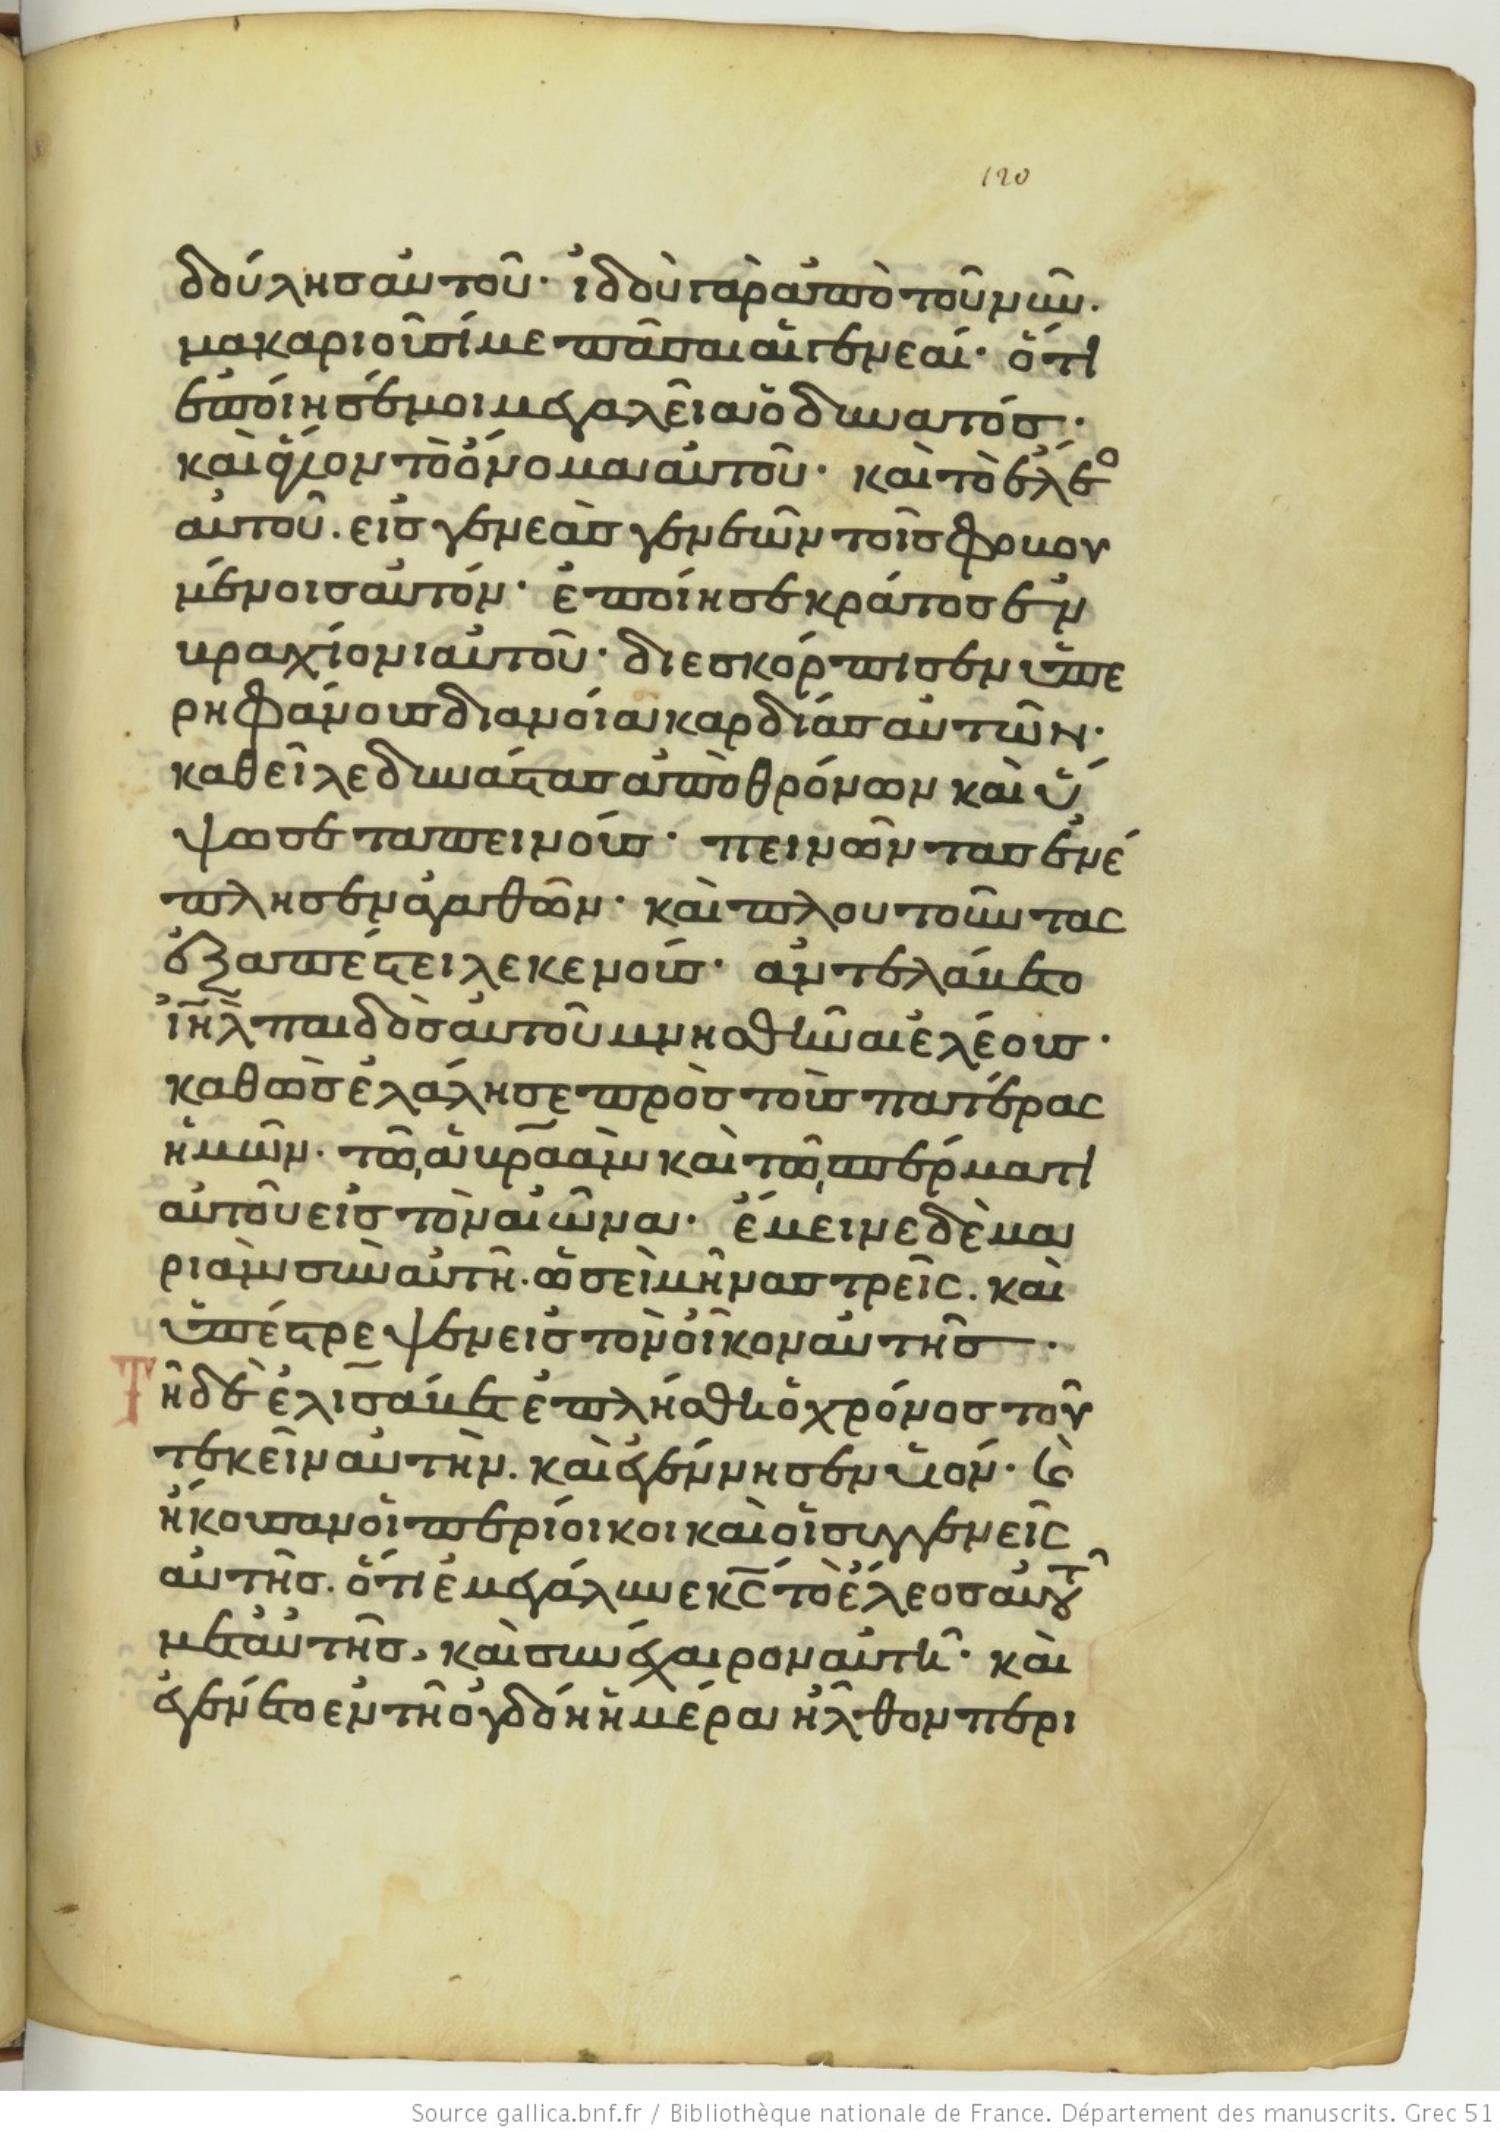 120
δούλησ αὐτοῦ· ἰδοὺ γὰρ ἀπὸ τοῦ νῦν·
μακαριοῦσί με πᾶσαι αἱ γενεαί· ὅτι
ἐποίησέ μοι μεγαλεῖα ὁ δυνατόσ·
καὶ ἅγιον τὸ ὄνομα αὐτοῦ· καὶ τὸ ἔλεο
αὐτοῦ. εἰσ γενεὰσ γενεῶν τοῖσ φοβου
μένοισ αὐτόν· ἐποίησε κράτοσ ἐν
βραχίονι αὐτοῦ· διεσκόρπισεν ὑπε
ρηφάνουσ διανοία καρδίασ αὐτῶν·
καθεῖλε δυνάστασ ἀπὸ θρόνων καὶ ὕ
ψωσε ταπεινούσ· πεινῶντασ ἐνέ
πλησεν ἀγαθῶν· καὶ πλουτοῦντας
ἐξαπέστειλε κενούσ· ἀντελάβετο
ἰηλ παιδὸσ αὐτοῦ μνησθῆναι ἐλέουσ·
καθὼσ ἐλάλησε πρὸσ τοὺσ πατέρας
ἡμῶν· τῶ, ἀβραὰμ καὶ τῶ, σπέρματι
αὐτοῦ εἰσ τὸν αἰῶνα· ἔμεινε δὲ μα
ριὰμ σὺν αὐτῆ· ὡσεὶ μῆνασ τρεῖς. καὶ
ὑπέστρεψεν εἰσ τὸν οἶκον αὐτῆσ·
Τῆ δὲ ἐλισάβετ ἐπλήσθη ὁ χρόνοσ τοῦ
τεκεῖν αὐτὴν. καὶ ἐγέννησεν υἱόν· ϗ
ἤκουσαν οἱ περίοικοι καὶ οἱ συγγενεῖς
αὐτῆσ. ὅτι ἐμεγάλυνε κς τὸ ἔλεοσ αὐτοῦ
μετ' αὐτῆσ, καὶ συνέχαιρον αὐτῆ· καὶ
ἐγένετο ἐν τῆ ὀγδόη ἡμέρα ἦλθον περι
Source gallica.bnf.fr / Bibliothèque nationale de France. Département des manuscrits. Grec 51